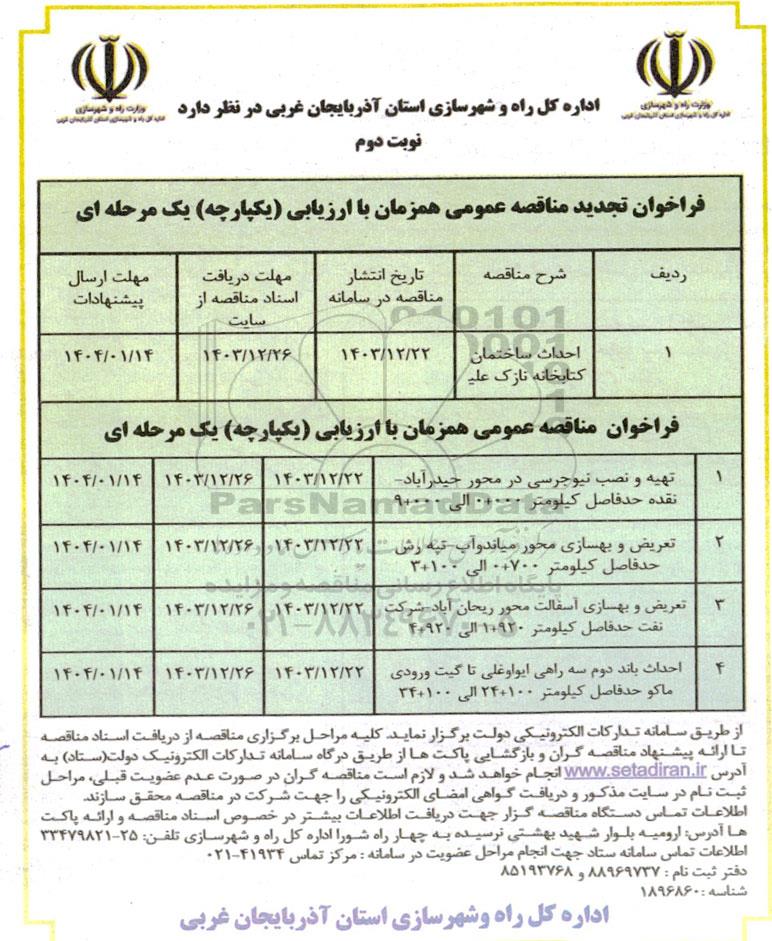 وزارت راه و شهرسازی
اداره کل راه و شهرسازی استان آذربایجان غربی
وزارت راه و شهرسازی
اداره کل راه و شهرسازی استان آذربایجان غربی
اداره کل راه و شهرسازی استان آذربایجان غربی در نظر دارد
نوبت دوم
فراخوان تجدید مناقصه عمومی همزمان با ارزیابی (یکپارچه) یک مرحله ای
ردیف شرح مناقصه تاریخ انتشار مناقصه در سامانه مهلت دریافت اسناد مناقصه از سایت مهلت ارسال پیشنهادات
۱ احداث ساختمان کتابخانه نازک علیا ۱۴۰۳/۱۲/۲۲ ۱۴۰۳/۱۲/۲۶ ۱۴۰۴/۰۱/۱۴
فراخوان مناقصه عمومی همزمان با ارزیابی (یکپارچه) یک مرحله ای
۱ تهیه و نصب نیوجرسی در محور حیدراباد- نقده حدفاصل کیلومتر ۰۰۰+۰ الی ۰۰۰+۹ ۱۴۰۳/۱۲/۲۲ ۱۴۰۳/۱۲/۲۶ ۱۴۰۴/۰۱/۱۴
۲ تعریض و بهسازی محور میاندوآب-تپه رش حدفاصل کیلومتر ۷۰۰+۰ الی ۱۰۰+۳ ۱۴۰۳/۱۲/۲۲ ۱۴۰۳/۱۲/۲۶ ۱۴۰۴/۰۱/۱۴
۳ تعریض و بهسازی آسفالت محور ریحان آباد-شرکت نفت حدفاصل کیلومتر ۹۲۰+۱ الی ۹۲۰+۴ ۱۴۰۳/۱۲/۲۲ ۱۴۰۳/۱۲/۲۶ ۱۴۰۴/۰۱/۱۴
۴ احداث باند دوم سه راهی ایواوغلی تا گیت ورودی ماکو حدفاصل کیلومتر ۱۰۰+۲۴ الی ۱۰۰+۳۴ ۱۴۰۳/۱۲/۲۲ ۱۴۰۳/۱۲/۲۶ ۱۴۰۴/۰۱/۱۴
ParsNamadData
پایگاه اطلاع رسانی مناقصه و مزایده
۰۲۱-۸۸۳۴۹۶۷۰
از طریق سامانه تدارکات الکترونیکی دولت برگزار نماید. کلیه مراحل برگزاری مناقصه از دریافت اسناد مناقصه
تا ارائه پیشنهاد مناقصه گران و بازگشایی پاکت ها از طریق درگاه سامانه تدارکات الکترونیک دولت(ستاد) به
آدرس www.setadiran.ir انجام خواهد شد و لازم است مناقصه گران در صورت عدم عضویت قبلی، مراحل
ثبت نام در سایت مذکور و دریافت گواهی امضای الکترونیکی را جهت شرکت در مناقصه محقق سازند.
اطلاعات تماس دستگاه مناقصه گزار جهت دریافت اطلاعات بیشتر در خصوص اسناد مناقصه و ارائه پاکت
ها آدرس: ارومیه بلوار شهید بهشتی نرسیده به چهار راه شورا اداره کل راه و شهرسازی تلفن: ۲۵-۳۳۴۷۹۸۲۱
اطلاعات تماس سامانه ستاد جهت انجام مراحل عضویت در سامانه : مرکز تماس ۴۱۹۳۴-۰۲۱
دفتر ثبت نام : ۸۸۹۶۹۷۳۷ و ۸۵۱۹۳۷۶۸
شناسه :۱۸۹۶۸۶۰
اداره کل راه وشهرسازی استان آذربایجان غربی